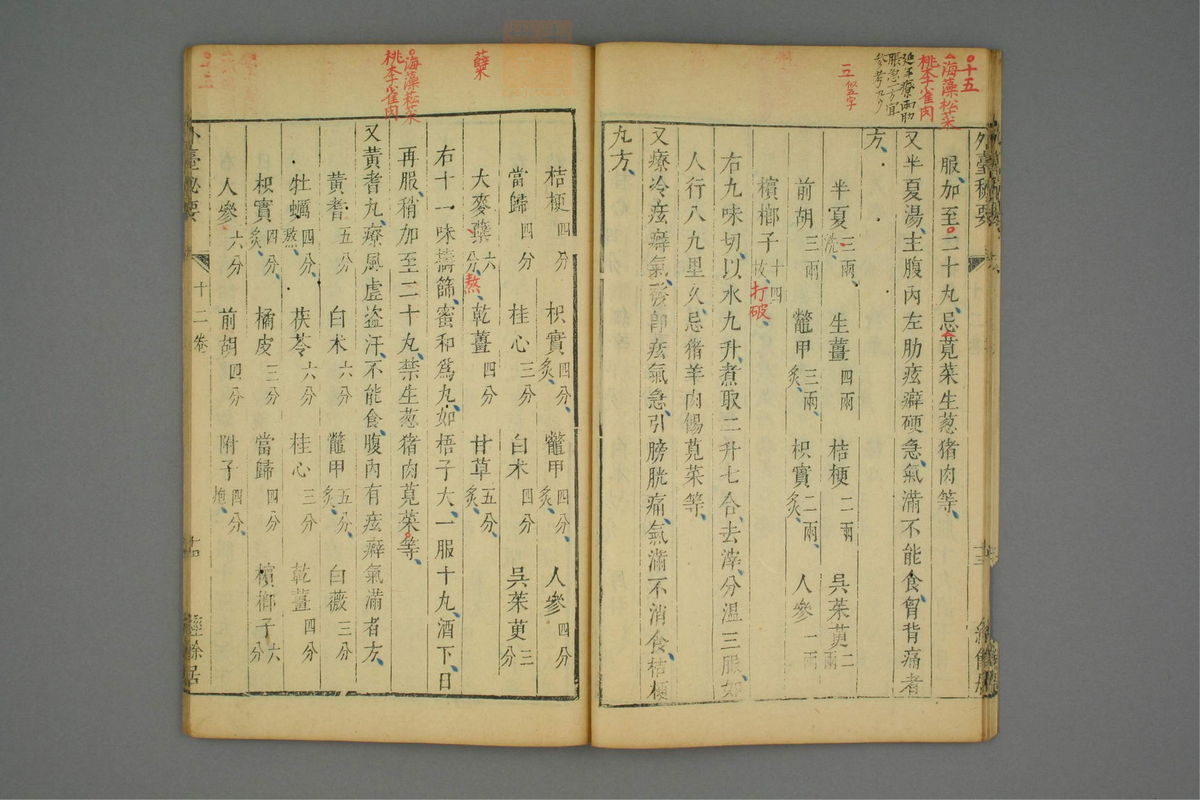 十五
海藻菘菜
桃李雀肉
延年療兩肋
脹急一方宜
參考
三 似五字
外臺秘要
服加至二十丸忌莧菜生葱猪肉等
又半夏湯主腹內左肋痃癖硬急氣滿不能食胷背痛者
方
半夏三兩洗 生薑四兩 桔梗二兩 吳茱萸二兩
前胡三兩 鼈甲三兩炙 枳實二兩炙 人參一兩
檳榔子十四枚 打破
右九味切以水九升煮取二升七合去滓分溫三服如
人行八九里久忌猪羊肉餳莧菜等
又療冷痃癖氣發卽痃氣急引膀胱痛氣滿不消食桔梗
丸方
蘗
海藻菘菜
桃李雀肉
桔梗四分 枳實四分炙 鼈甲四分炙 人參四分
當歸四分 桂心三分 白术四分 吳茱萸三分
大麥蘗六分 熬 乾薑四分 甘草五分炙
右十一味擣篩蜜和爲丸如梧子大一服十丸酒下日
再服稍加至二十丸禁生葱猪肉莧菜等
又黃耆丸療風虛盜汗不能食腹內有痃癖氣滿者方
黃耆五分 白术六分 鼈甲五分炙 白薇三分
牡蠣四分熬 茯苓六分 桂心三分 乾薑四分
枳實四分炙 橘皮三分 當歸四分 檳榔子六分
人參六分 前胡四分 附子四分炮
外臺秘要
十二卷
經餘居